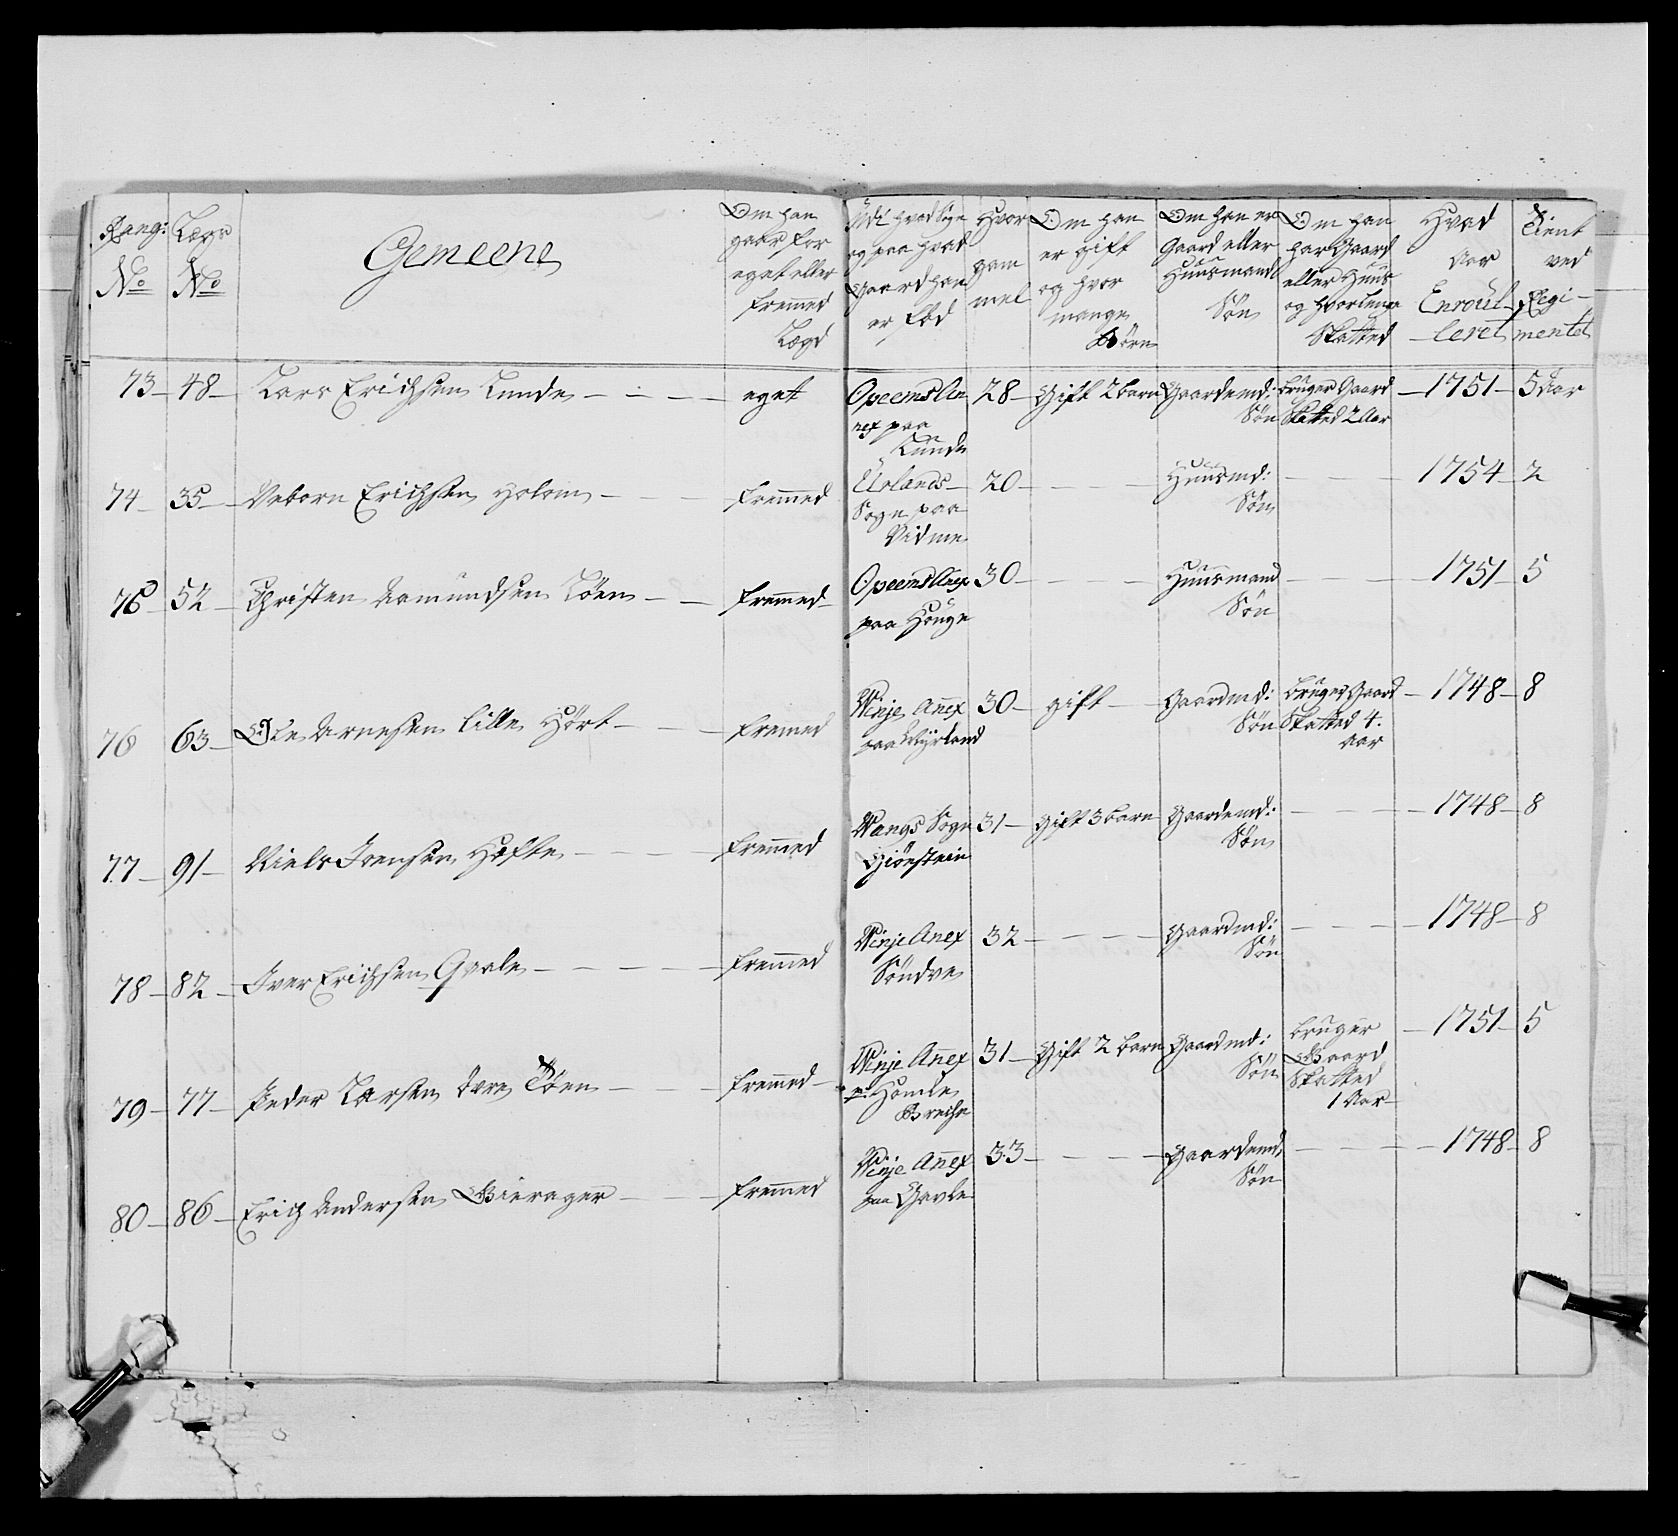 Rang: No
Lægs No
Gemeene
Om han gaar for eget eller fremmed Lægd
Udi hvad Sogn og paa hvad Gaard han er fød
Hvor gam mel
Om han er gift og hvor mange Børn
Om han er Gaard eller Huusmands Søn
Om han har Gaard eller Huus og hvorlenge Skatted
Hvad Aar Enroul leret
Tient ved Regi mentet
73 - 48 - Lars Erichsen Lunde - - - - eget Opeems An nex paa Lunde 28 - Gift 2 barn Gaardemd: Søn bruger Gaard Skatted 2 Aar - 1751 - 5 Aar
74 - 35 - Veborn Erichsen Holom - - - fremmed Urlands Sogn paa Vidme 20 - - - Huusmd: Søn - - - 1754 - 2
75 - 52 - Christen Aamundsen Tøen - - fremmed - Opeems Anex paa Houge 30 - - - Huusmand Søn - - - 1751 - 5
76 63 - Ole Arnesen lille Hört - - - fremed Winje Anex paa Myrland 30 - gift - Gaardmd: Søn bruger Gaard Skatted 4. Aar - 1748 - 8
77 - 91 - Niels Iversen Hefte - - - - fremmed Wangs Sogn Giönstein 31 - gift 3 barn Gaardemd: Søn - - - 1748 - 8
78 - 82 - Iver Erichsen Gvale - - - - - fremmed Winje Anex Söndve 32 - - - - Gaardmd: Søn - - - 1748 - 8
79 - 77 - Peder Larsen Øvre Tøen - - fremmed - Winje Anex p: Homle Breche 31 - Gift 2 barn Gaardmd: Søn bruger Gaard Skatted 1 Aar - 1751 - 5
80 - 86 - Erich Andersen Gierager - - fremmed Winje Anex paa Gavle 33 - - - - Gaardemd: Søn - - - 1748 - 8